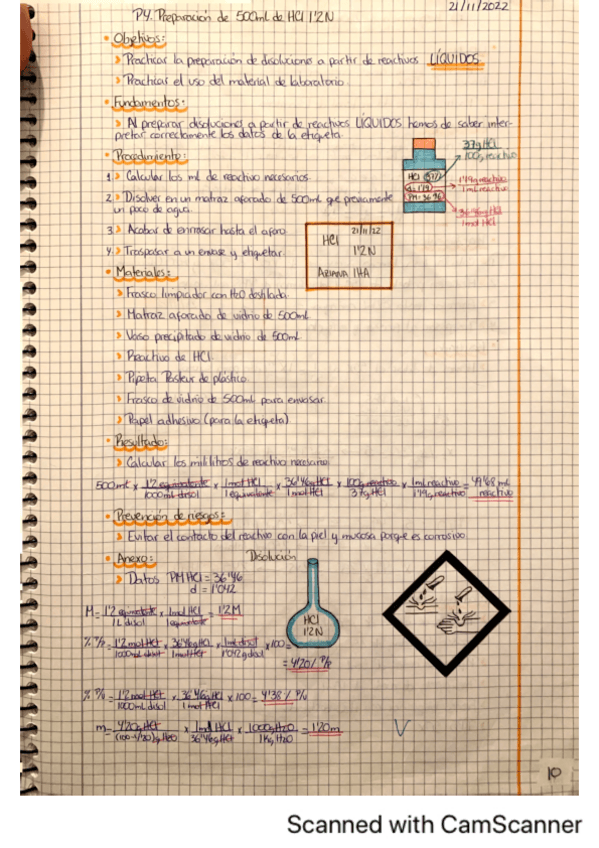 21/11/2022
P4. Preparación de 500ml de HCl 1'2N
• Objetivos:
> Practicar la preparación de disoluciones a partir de reactivos LÍQUIDOS.
> Practicar el uso del material de laboratorio.
• Fundamentos:
> Al preparar disoluciones a partir de reactivos LÍQUIDOS hemos de saber inter-
pretar correctamente los datos de la etiqueta.
• Procedimiento:
1.> Calcular los ml de reactivo necesarios.
2.> Disolver en un matraz aforado de 500ml que previamente
un poco de agua.
3.> Acabar de enrasar hasta el aforo.
4.> Traspasar a un envase y etiquetar.
37g HCl
100g reactivo
HCl (37%)
d=1'19
PM=36'46
1'19g reactivo
1ml reactivo
36'46g HCl
1mol HCl
21/11/22
HCl
1'2N
ARIANA 1HA
• Materiales:
> Frasco limpiador con H₂O destilada.
> Matraz aforado de vidrio de 500ml
> Vaso precipitado de vidrio de 500ml
> Reactivo de HCl.
> Pipeta Pasteur de plástico.
> Frasco de vidrio de 500ml para envasar.
> Papel adhesivo (para la etiqueta)
• Resultado:
> Calcular los mililitros de reactivo necesario:
500ml x 1'2 equivalente/1000ml disol x 1mol HCl/1equivalente x 36'46g HCl/1mol HCl x 100g reactivo/37g HCl x 1ml reactivo/1'19g reactivo = 49'68 ml reactivo
• Prevención de riesgos:
> Evitar el contacto del reactivo con la piel y mucosa porque es corrosivo.
• Anexo:
Disolución
> Datos PM HCl = 36'46
d = 1'042
HCl
1'2N
M = 1'2 equivalente/1L disol x 1mol HCl/1equivalente = 1'2M
% P/P = 1'2 mol HCl/1000ml disol x 36'46g HCl/1mol HCl x 1ml disol/1'042g disol x 100 =
= 4'20% P/P
% P/V = 1'2 mol HCl/1000ml disol x 36'46g HCl/1mol HCl x 100 = 4'38% P/V
m = 4'20g HCl/(100-4'20)g H₂O x 1mol HCl/36'46g HCl x 1000g H₂O/1Kg H₂O = 1'20m
10
Scanned with CamScanner